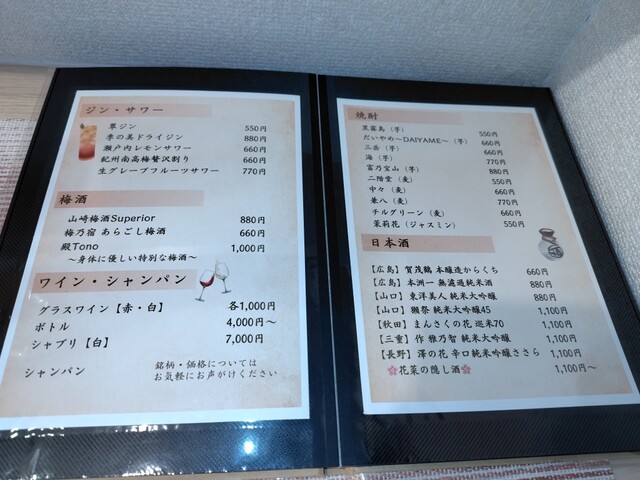 ジン・サワー
翠ジン 550円
季の美ドライジン 880円
瀬戸内レモンサワー 660円
紀州南高梅贅沢割り 660円
生グレープフルーツサワー 770円
梅酒
山崎梅酒Superior 880円
梅乃宿 あらごし梅酒 660円
殿Tono 1,000円
～身体に優しい特別な梅酒～
ワイン・シャンパン
グラスワイン【赤・白】 各1,000円
ボトル 4,000円～
シャブリ【白】 7,000円
シャンパン 銘柄・価格については
お気軽にお声がけください
焼酎
黒霧島（芋） 550円
だいやめ～DAIYAME～（芋） 660円
三岳（芋） 660円
海（芋） 770円
富乃宝山（芋） 880円
二階堂（麦） 550円
中々（麦） 660円
兼八（麦） 770円
チルグリーン（麦） 660円
茉莉花（ジャスミン） 550円
日本酒
【広島】賀茂鶴 本醸造からくち 660円
【広島】本洲一 無濾過純米酒 880円
【山口】東洋美人 純米大吟醸 880円
【山口】獺祭 純米大吟醸45 1,100円
【秋田】まんさくの花 巡米70 1,100円
【三重】作 雅乃智 純米大吟醸 1,100円
【長野】澤の花 辛口純米吟醸ささら 1,100円
花菜の隠し酒 1,100円～